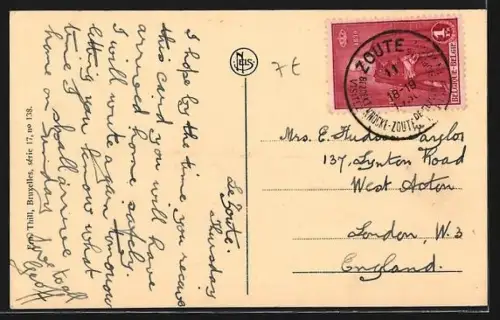 Le Zoute.
Thursday
I hope by the time you receive
this card you will have
arrived home safely.
I will write again tomorrow
letting you know what
time I shall arrive
home on Sunday
Geoff
Thill, Bruxelles, série 17, no 138.
NELS
7€
1F
BELGIQUE-BELGIË
ZOUTE
11
18-19
KNOCKE-ZOUTE
Mrs. E. Hudson Taylor
137, Lynton Road
West Acton
London, W.3
England.